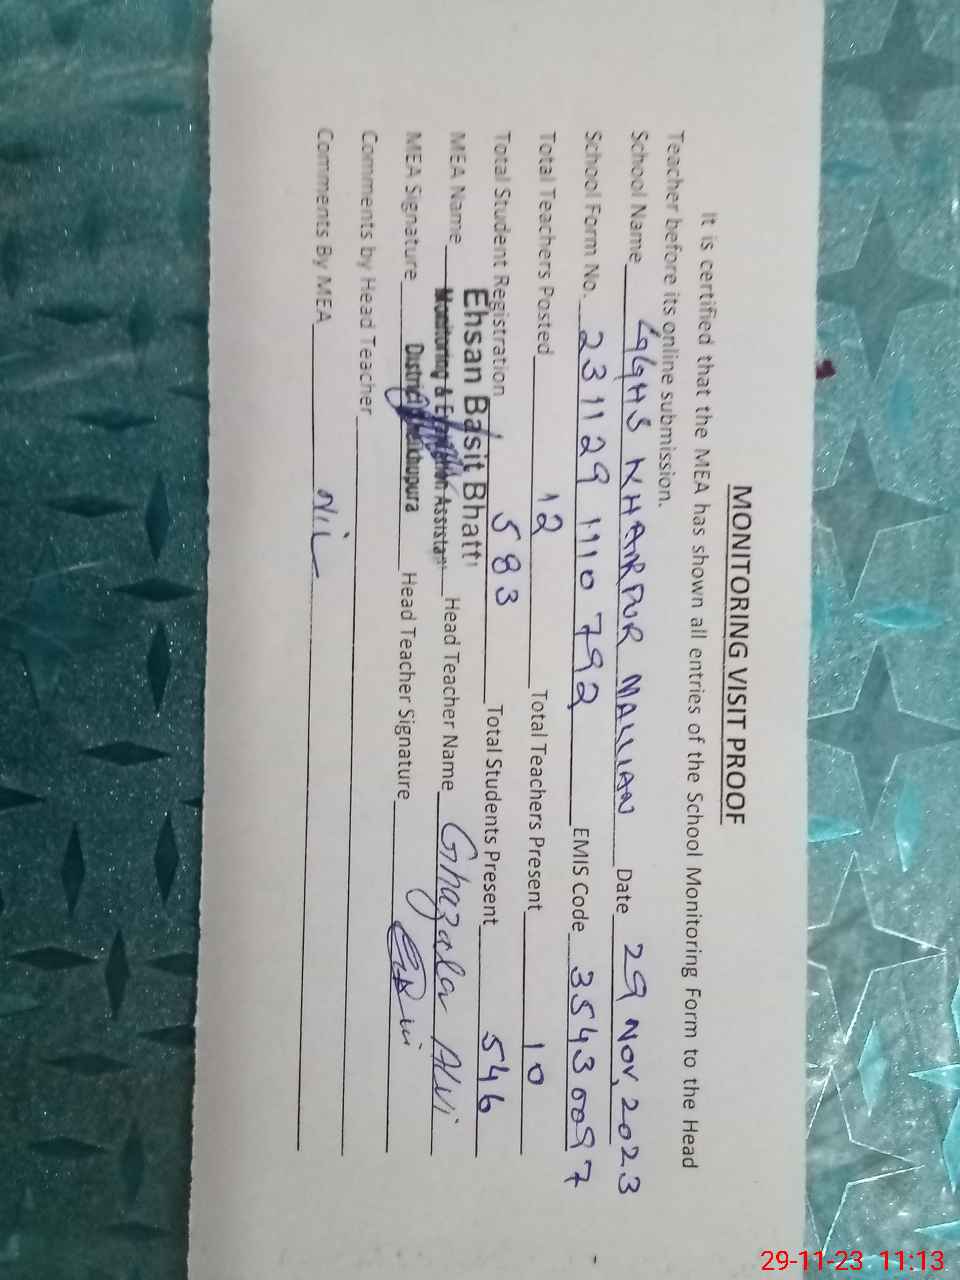 MONITORING VISIT PROOF
It is certified that the MEA has shown all entries of the School Monitoring Form to the Head
Teacher before its online submission.
School Name GGHS KHAIRPUR MALLIAN Date 29 Nov, 2023
School Form No. 231129 1110792 EMIS Code 35430097
Total Teachers Posted 12 Total Teachers Present 10
Total Student Registration 583 Total Students Present 546
Ehsan Basit Bhatti
MEA Name Monitoring & Evaluation Assistant Head Teacher Name Ghazala Alvi
MEA Signature District Sheikhupura Head Teacher Signature
Comments by Head Teacher
Comments By MEA Nil
29-11-23 11:13